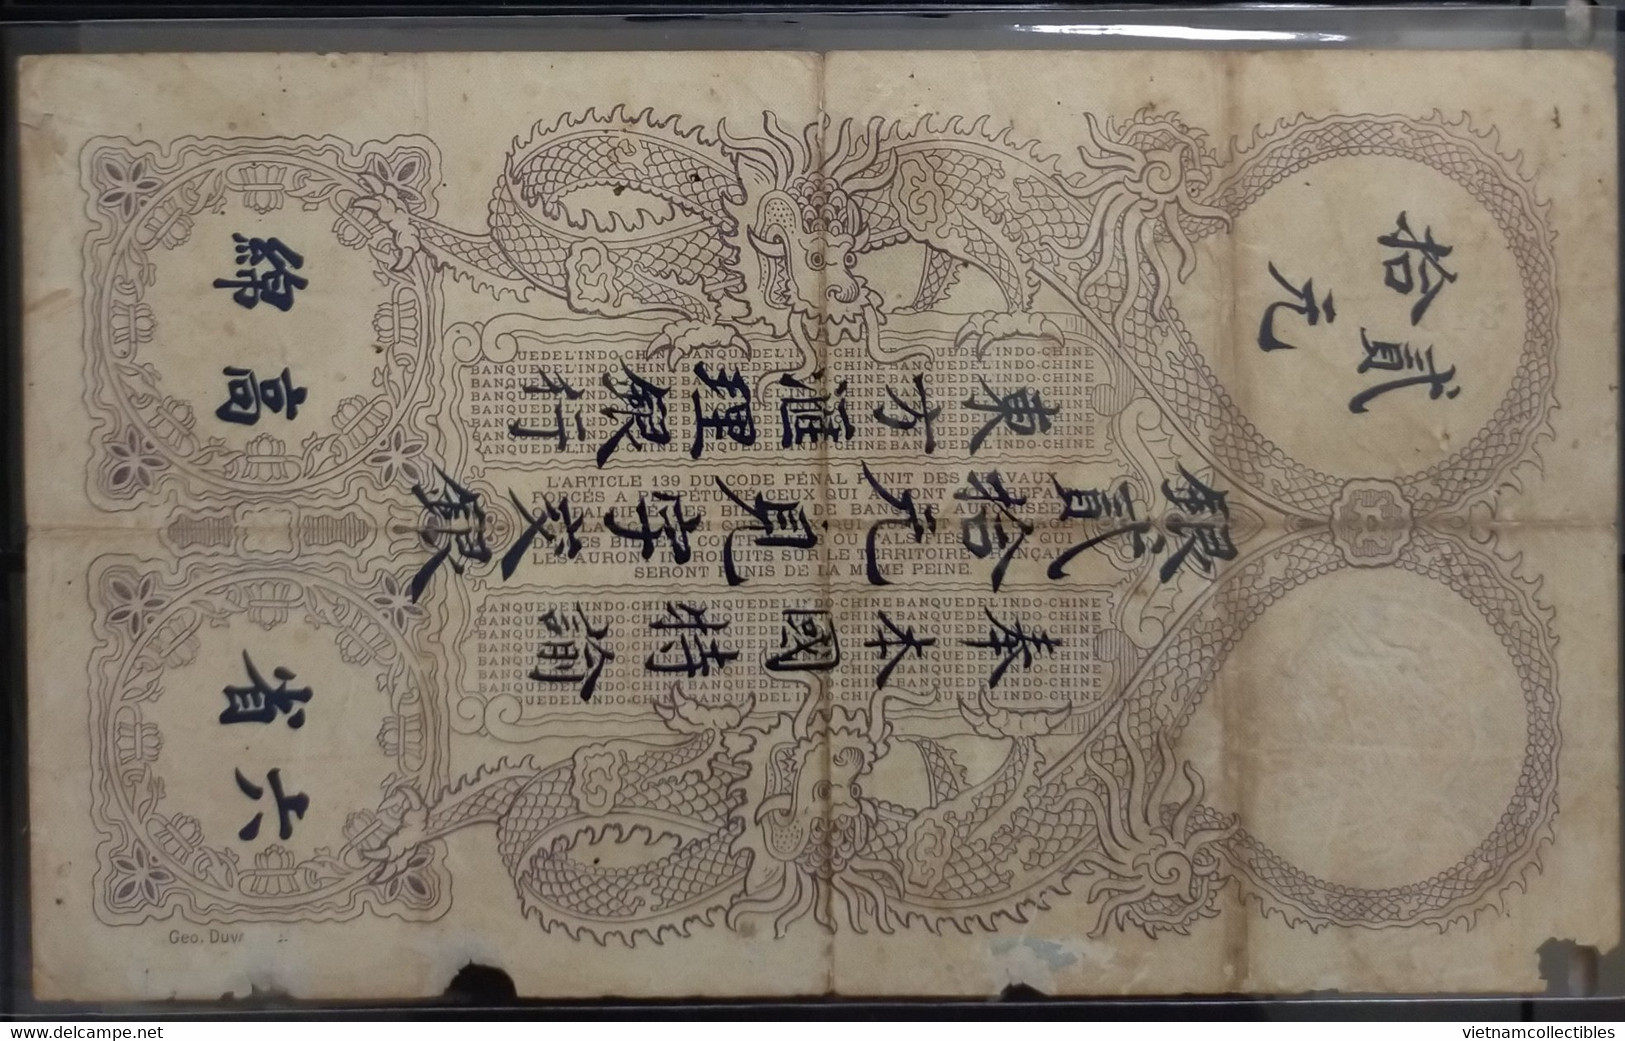 貳拾
元
奉本國特諭
銀貳拾元見字交銀
東方滙理銀行
六省
高綿
BANQUE DE L'INDO-CHINE BANQUE DE L'INDO-CHINE BANQUE DE L'INDO-CHINE
L'ARTICLE 139 DU CODE PÉNAL PUNIT DES TRAVAUX
FORCÉS A PERPÉTUITÉ CEUX QUI AURONT CONTREFAIT
OU FALSIFIÉ LES BILLETS DE BANQUE AUTORISÉS
PAR LA LOI, AINSI QUE CEUX QUI AURONT FAIT USAGE
DE CES BILLETS CONTREFAITS OU FALSIFIÉS. CEUX QUI
LES AURONT INTRODUITS SUR LE TERRITOIRE FRANÇAIS
SERONT PUNIS DE LA MÊME PEINE.
BANQUE DE L'INDO-CHINE BANQUE DE L'INDO-CHINE BANQUE DE L'INDO-CHINE
Geo. Duv
www.delcampe.net
vietnamcollectibles